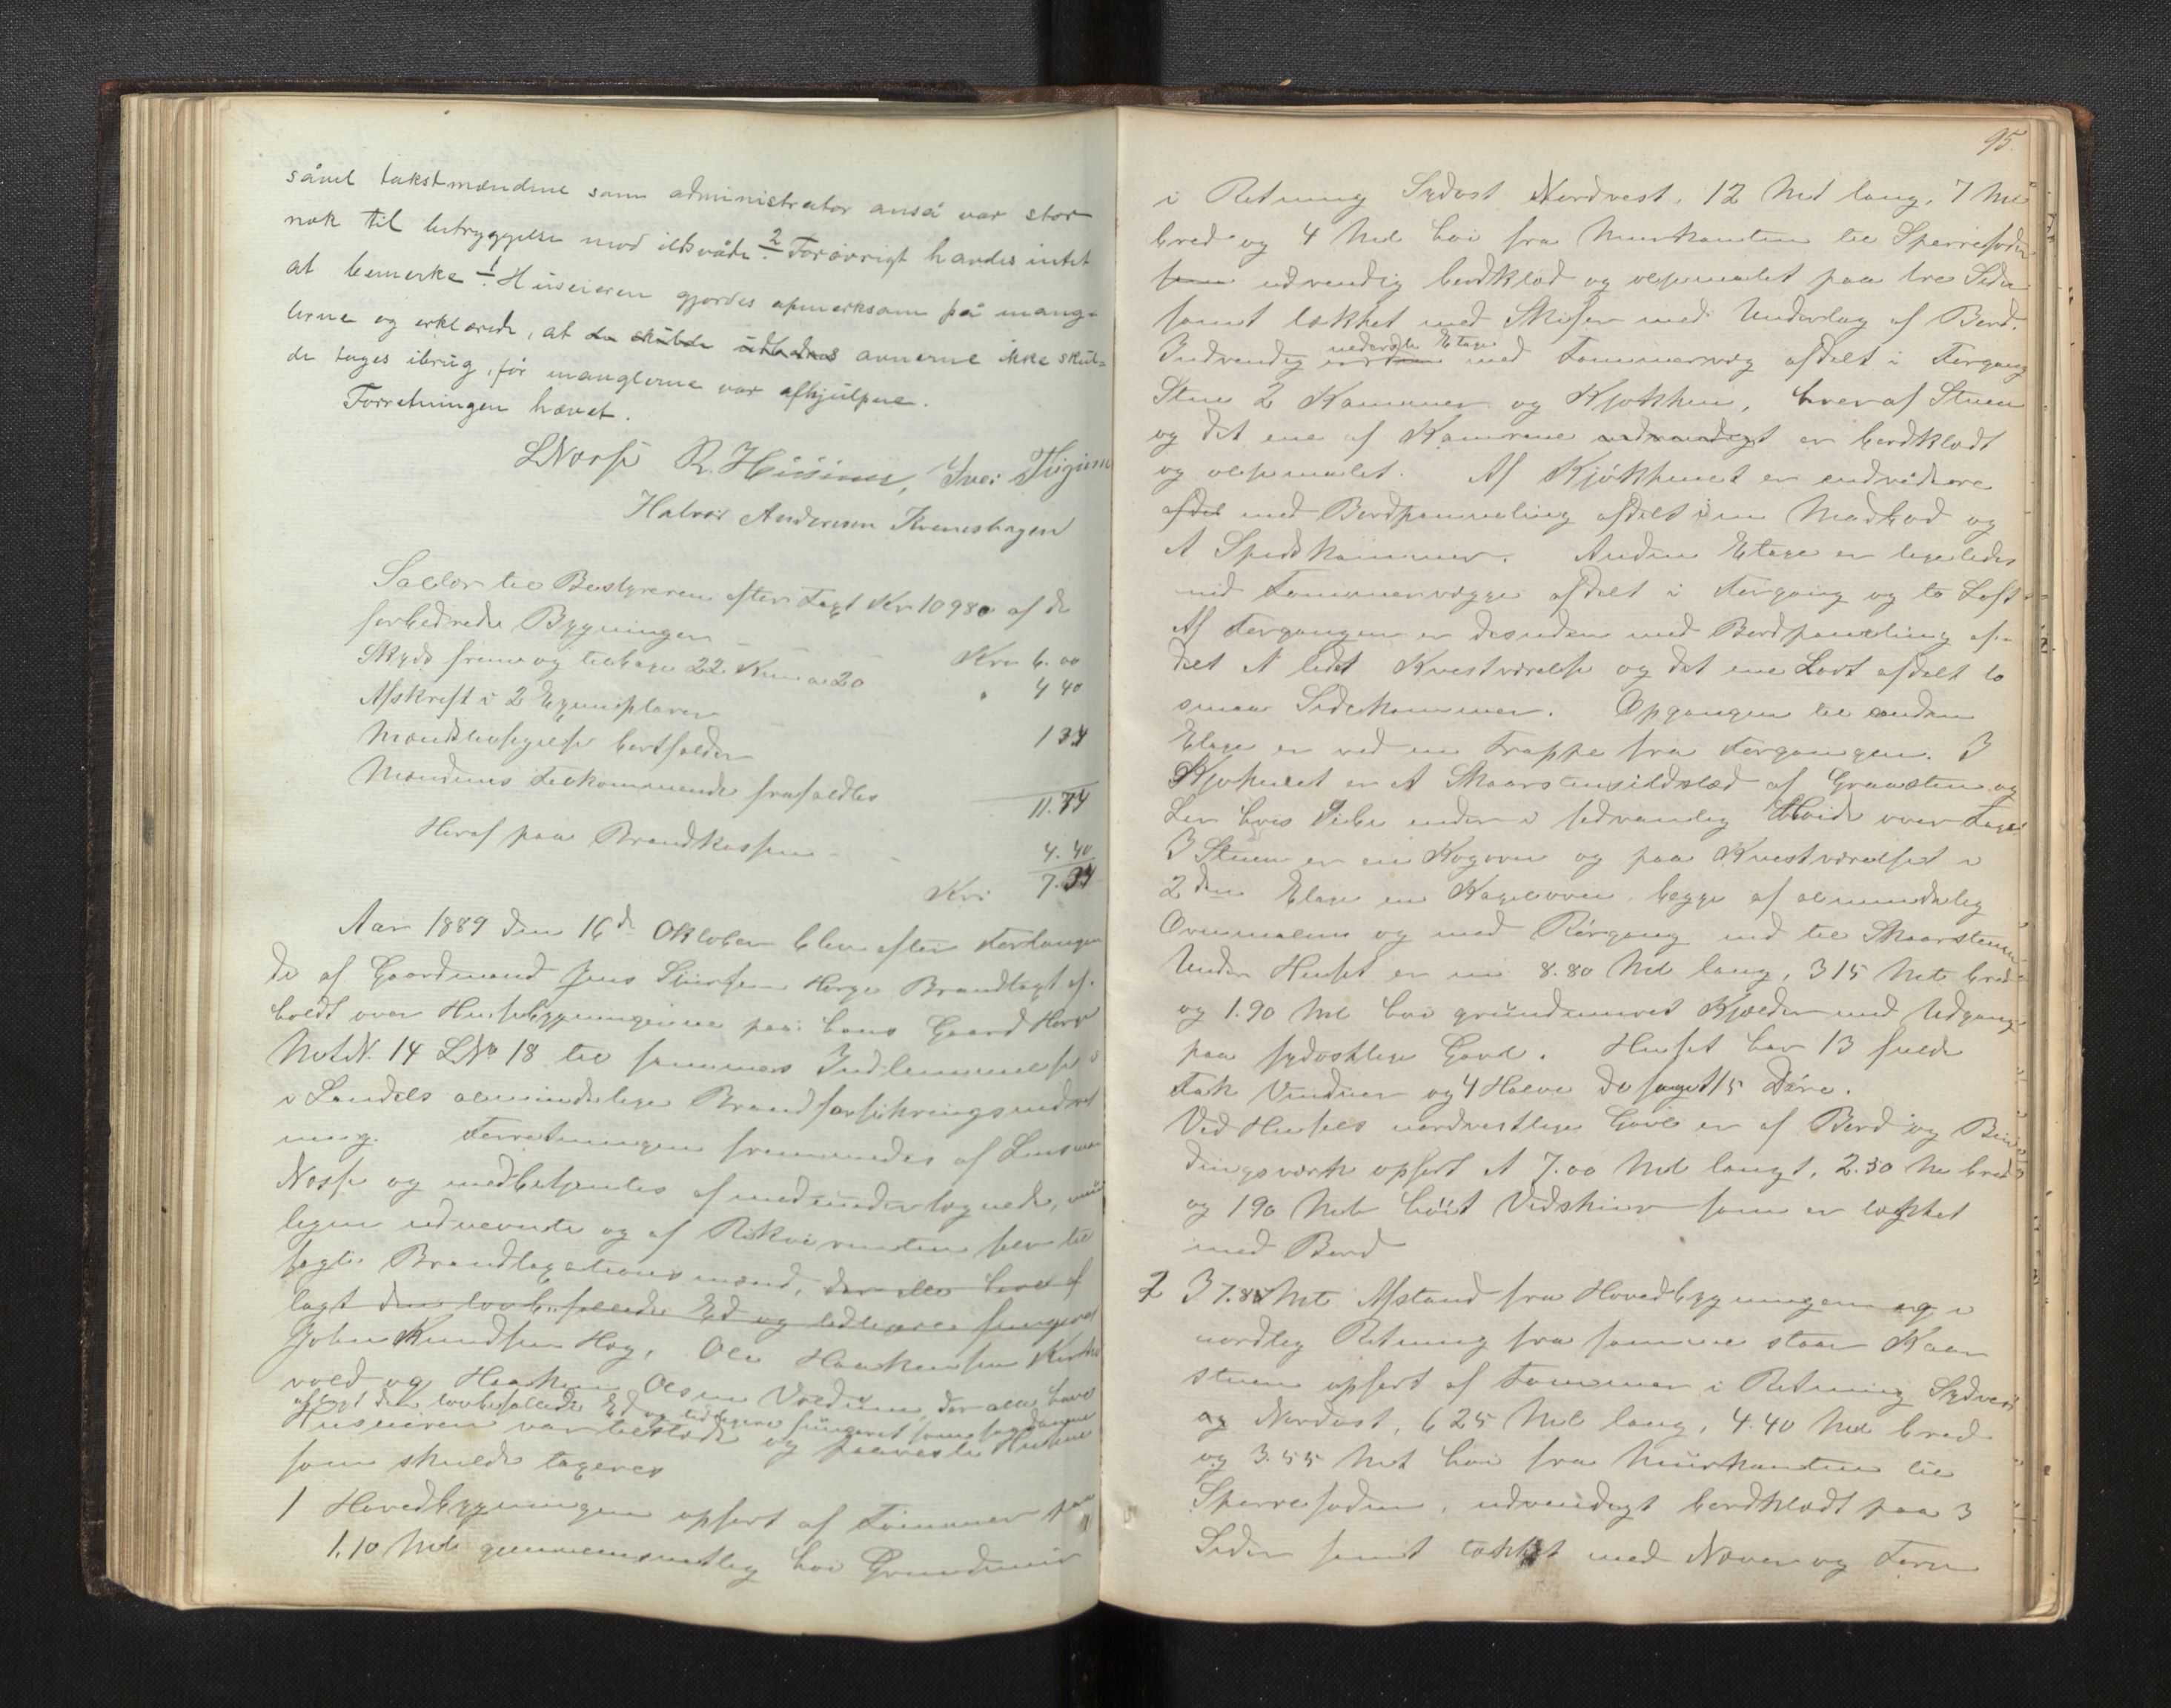 såvel takstmændene som administrator anså var stor
nok til betryggelse mod ildsvåde. 2 Forøvrigt havdes intet
at bemerke 1. Huseieren gjordes opmerksom på mang-
lerne og erklærede, at de skulde udbedres ovnerne ikke skul-
de tages ibrug, før manglerne var afhjulpne.
Forretningen hævet.
LNosse R. Iver
Halvor Andersen Kveneshagen
Sallær til Bestyreren efter Taxt Kr 10980 af de
forbedrede Bygninger Kr. 6.00
Skyds frem og tilbage 22 Km a 20 " 4 40
Afskrift i 2 Exemplarer 1 34
Mændstilsigelse bortfalder
Mændenes Tilkommende frafaldtes 11.74
Heraf paa Brandkassen 4.40
Kr: 7.34
Aar 1889 den 16de Oktober blev efter Forlangen-
de af Gaardmand Jens Horge Brandtaxt af-
holdt over Husebygningerne paa hans Gaard
MatN. 14 LNo 18 til sammes Indlemmelse
i Landets almindelige Brandforsikringsindret
ning. Forretningen fremmedes af Lensman
Nosse og medbetjentes af medundertegnede,
ligen udnævnte og af Rekvirenten selv til
sagte Brandtaxationsmænd, der alle have af
lagt den lovbefalede Ed og tidligere fungeret
John Knudsen Hog, Ole Haakensen
vold og Haaken Olsen Voldum, der alle have
aflagt den lovbefalede Ed og tidligere fungeret som saadanne
Huseieren var tilstede og paaviste Husene
som skulde taxeres
1 Hovedbygningen opført af Tømmer paa
1.10 Met gjennemsnitlig høi Grundmur
95.
i Retning Sydost Nordvest, 12 Met lang, 7 Met
bred og 4 Met høi fra Murkanten til Sperrefoden
udvendig bordklæd og oljemalet paa tre Sider
samt tækket med Skifer med Underlag af Bord.
nederste Etage
Indvendig med Tømmervæg afdelt i Forgang
Stue 2 Kammer og Kjøkken, hvoraf Stuen
og det ene af Kamrene indvendigt er bordklædt
og oljemalet. Af Kjøkkenet er endvidere
afdel med Bordpanneling afdelt en Madbod og
et Spiskammer. Anden Etage er ligeledes
med Tømmervægge afdelt i Forgang og to Loft
Af Forgangen er desuden med Bordpaneling af-
delt et lidet Kvestværelse og det ene Lovt afdelt to
smaa Sidekammer. Opgangen til anden
Etage er ved en Trappe fra Forgangen. I
Kjøkenet er et Skorstensildsted af Graasten og
Ler hvis Pibe ender i sedvanlig Høide over Taget
I Stuen er en Kogovn og paa Kvestværelset i
2den Etage en Kagelovn, begge af almindelig
Ovnmalm og med Rørgang ind til Skorstenen
Under Huset er en 8.80 Met lang, 315 Met bred
og 1.90 Met høi grundmuret Kjelder med Udgang
paa sydostlige Gavl. Huset har 13 fulde
Fak Vinduer og 4 Halve do samt 15 Døre.
Ved Husets nordvestlige Gavl er af Bord og Bin
dingsværk opført et 7.00 Met langt, 2.30 Me bred
og 190 Met høit Vedskiur som er tækket
med Bord
2 I 7.80 Met Afstand fra Hovedbygningen og i
nordlig Retning fra samme staar Kaar
stuen opført af Tømmer i Retning Sydvest
og Nordost, 625 Met lang, 4.40 Met bred
og 3.55 Met høi fra Murkanten til
Sperrefoden, udvendigt bordklædt paa 3
Sider samt tækket med Næver og Torv